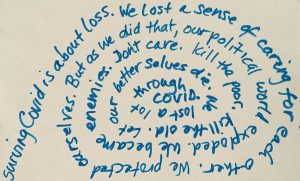 surving Covid is about loss. We lost a sense of caring for each other. We protected ourselves. But as we did that, our political world exploded. We became enemies. Don't care. Kill the poor. Kill the old. Let our better selves die. We lost a lot through COVID.